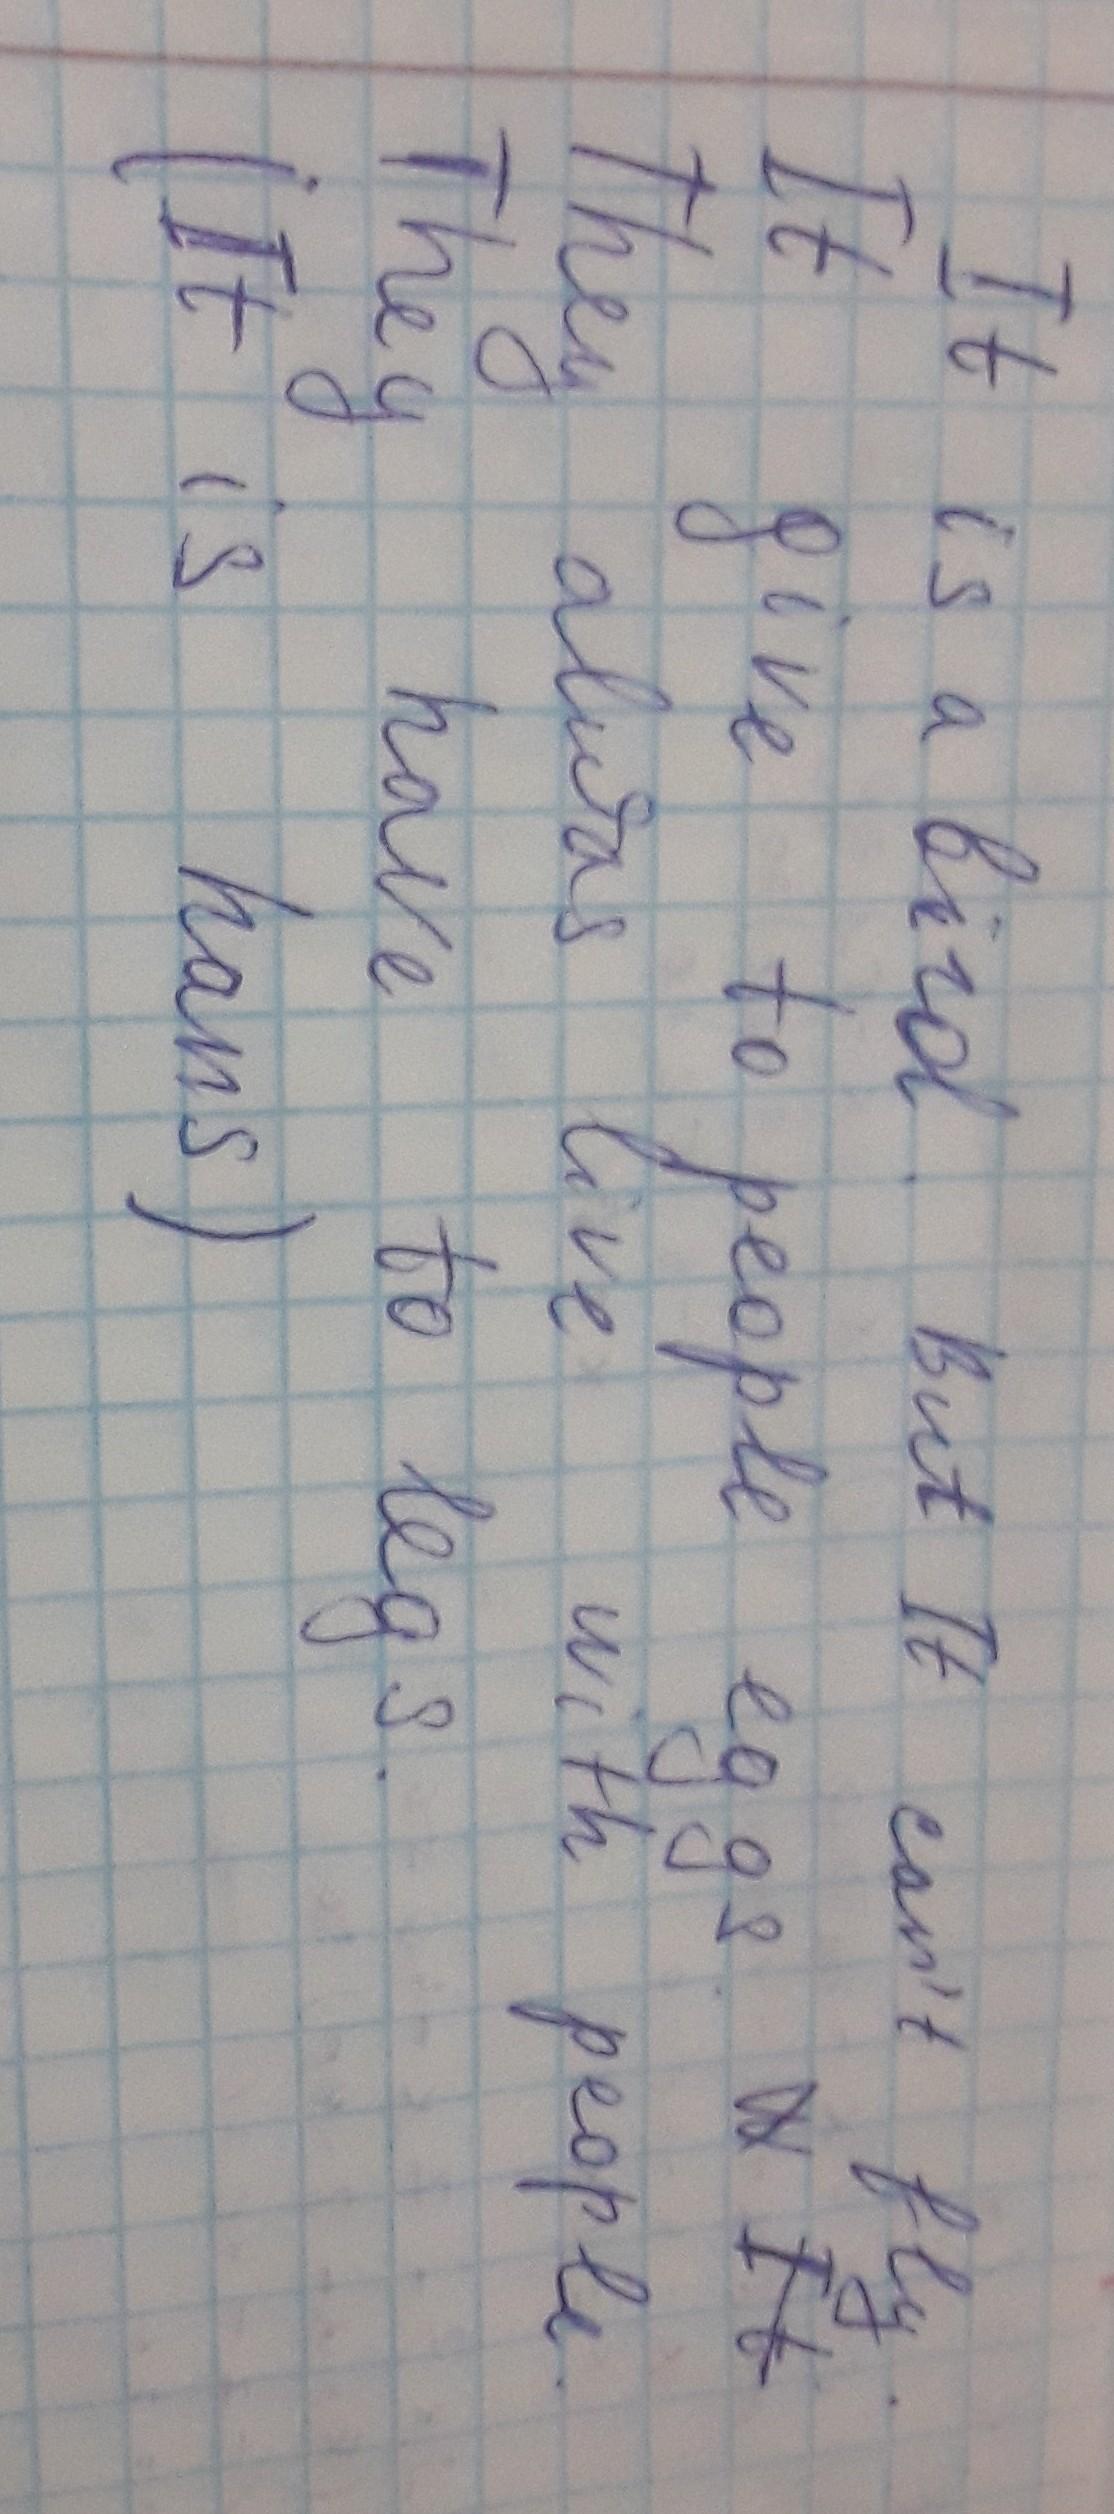 It is a bird. But It can't fly.
It give to people eggs. It
They alwas live with people.
They have to legs.
(It is hans)